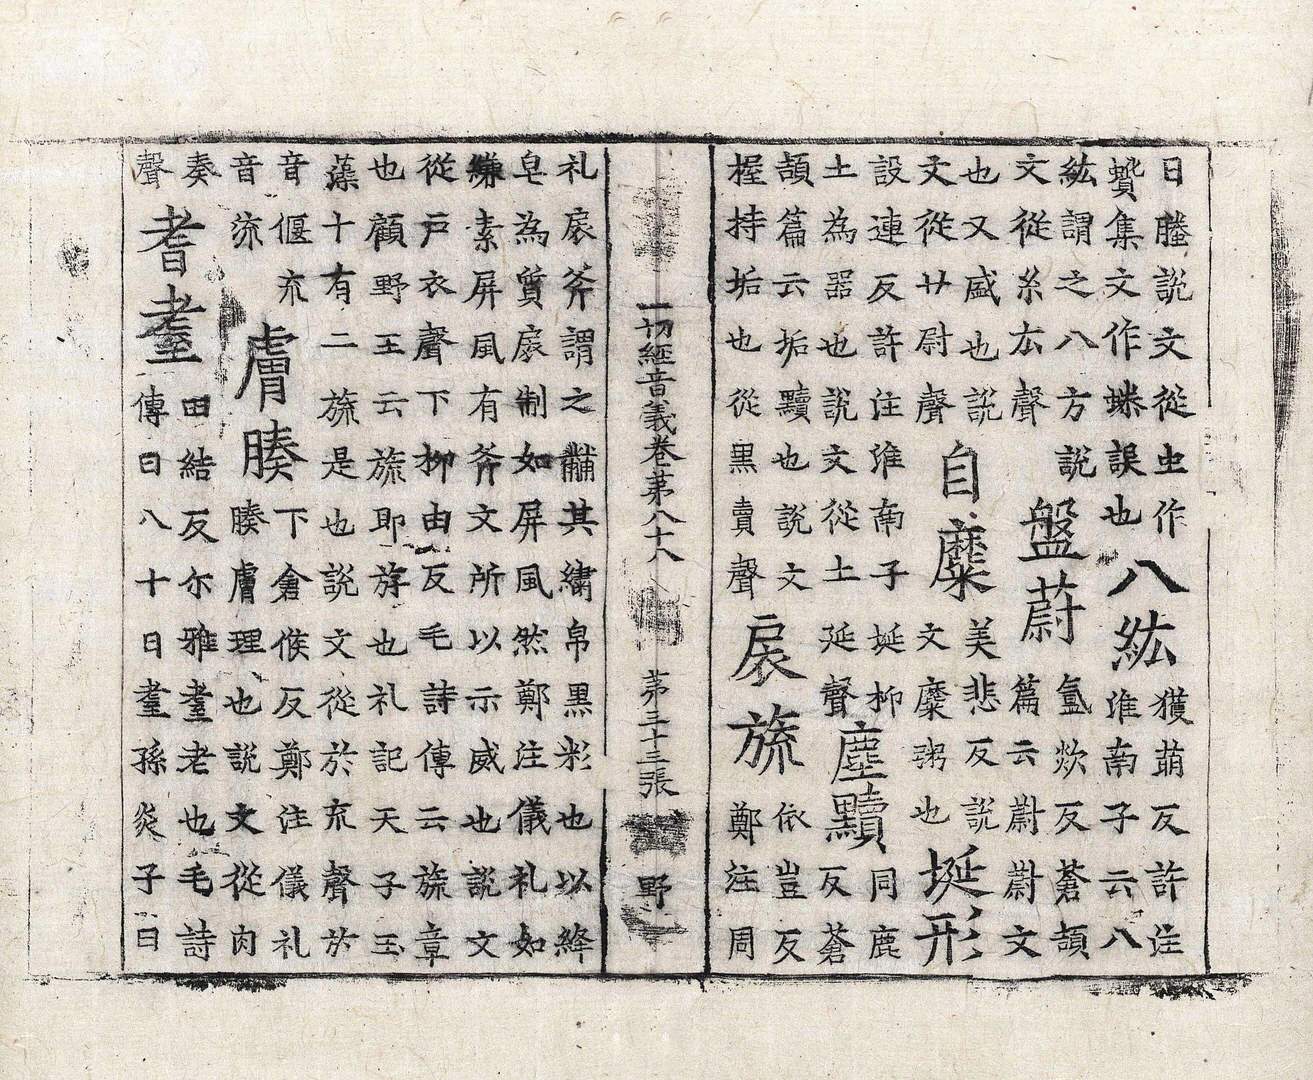 日螣說文從虫作
蠈集文作蟘誤也
八紘
獲萌反許注
淮南子云八
紘謂之八方說
文從糸厷聲
盤蔚
氳炊反蒼頡
篇云蔚蔚文
也又盛也說
文從廾尉聲
自糜
美悲反說
文糜粥也
埏形
設連反許注淮南子埏抑
土為器也說文從土延聲
塵黷
同鹿
反蒼
頡篇云垢黷也說文
握持垢也從黑賣聲
扆旒
依豈反
鄭注周
一切經音義卷第八十八 第三十三張 野
礼扆斧謂之黼其繡帛黑彩也以絳
皂為質扆制如屏風然鄭注儀礼如
縑素屏風有斧文所以示威也說文
從戶衣聲下柳由反毛詩傳云旒章
也顧野王云旒即斿也礼記天子玉
藻十有二旒是也說文從㫃㐬聲㫃
音偃㐬
音流
膚腠
下倉候反鄭注儀礼
腠膚理也說文從肉
奏
聲
耆耋
田結反尒雅耋老也毛詩
傳曰八十曰耋孫炎子曰